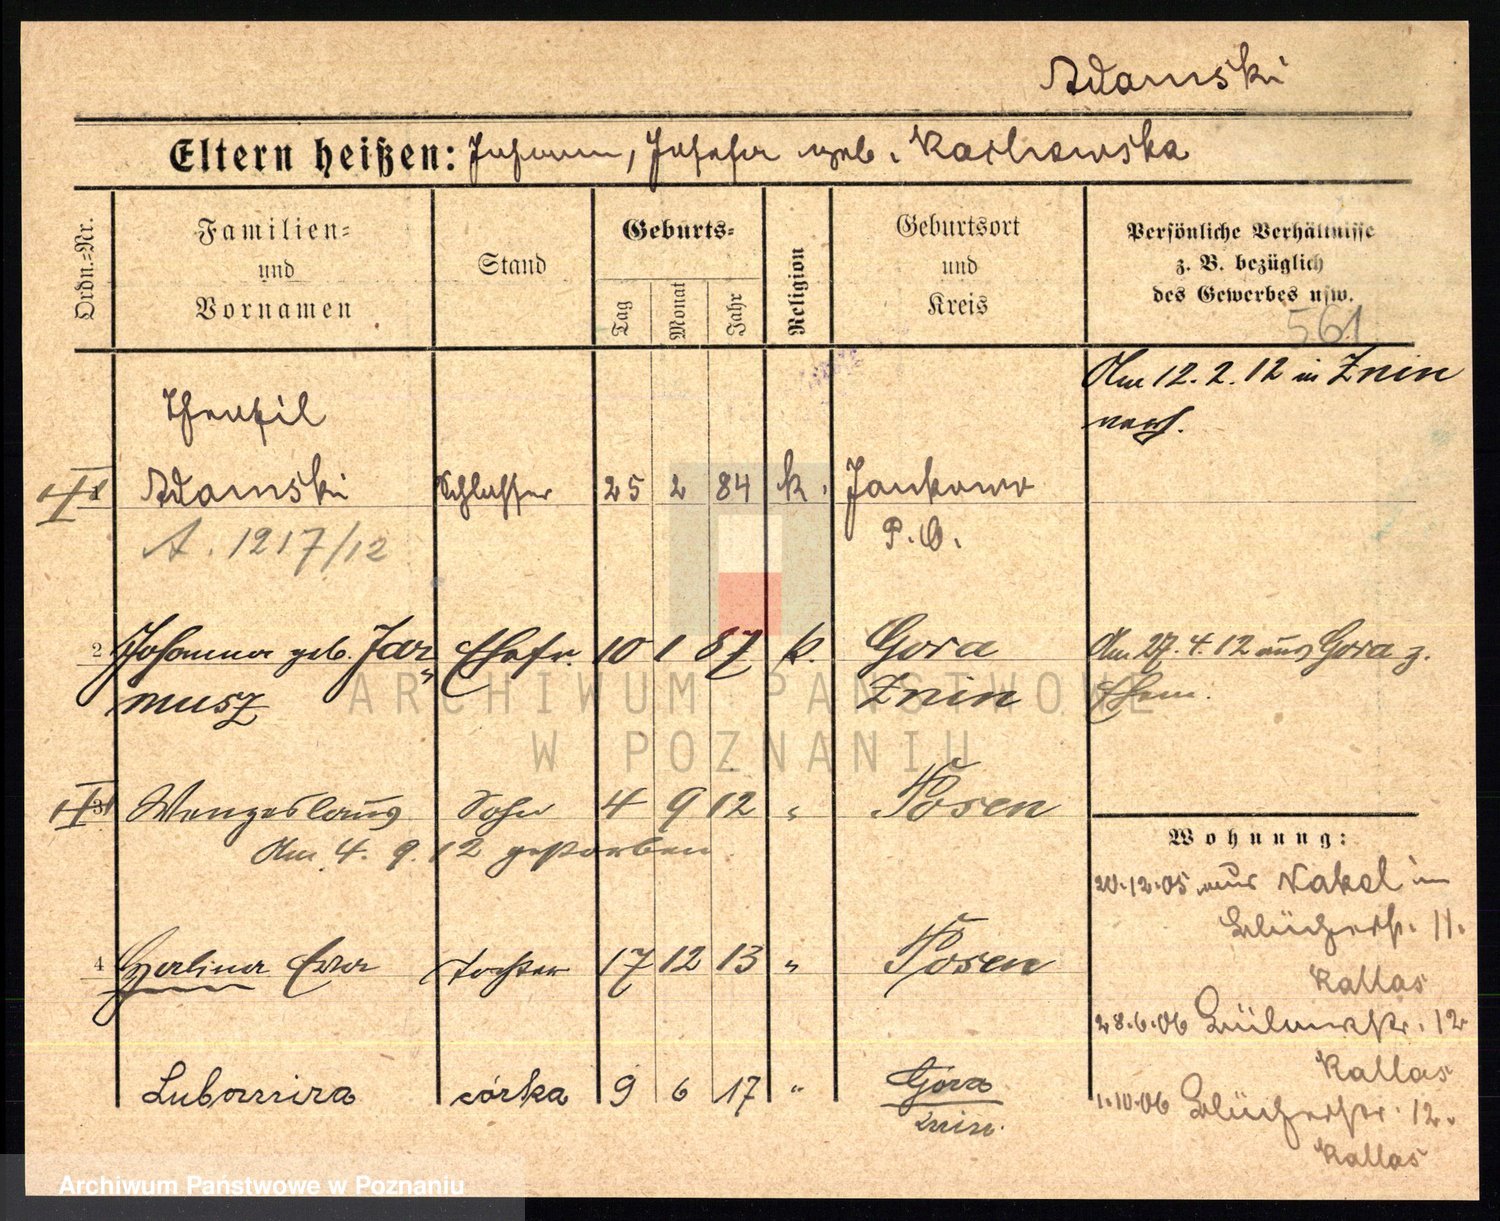 Adamski
Eltern heißen: Johann, Josefa geb. Karlowska
Ordn.-Nr.
Familien- und Vornamen
Stand
Geburts-
Tag
Monat
Jahr
Religion
Geburtsort und Kreis
Persönliche Verhältnisse
z. B. bezüglich
des Gewerbes usw.
561
Am 12. 2. 12 in Znin
verh.
Theofil
Adamski Schlosser 25 2 84 k. Jankowo
P. O.
A. 1217/12
2 Johanna geb. Jar Ehefr. 10 1 87 k. Gora
musz Znin
Am 27. 4. 12 aus Gora z.
Ehem.
3 Wenzeslaus Sohn 4 9 12 " Posen
Am 4. 9. 12 gestorben
4 Halina Ewa Tochter 17 12 13 " Posen
Lubomira córka 9 6 17 " Gora
Znin.
Wohnung:
20.12.05 aus Nakel in
Blücherstr. 11.
Kallas
28.6.06 Bülowstr. 12
Kallas
1.10.06 Blücherstr. 12.
Kallas
ARCHIWUM PAŃSTWOWE
W POZNANIU
Archiwum Państwowe w Poznaniu